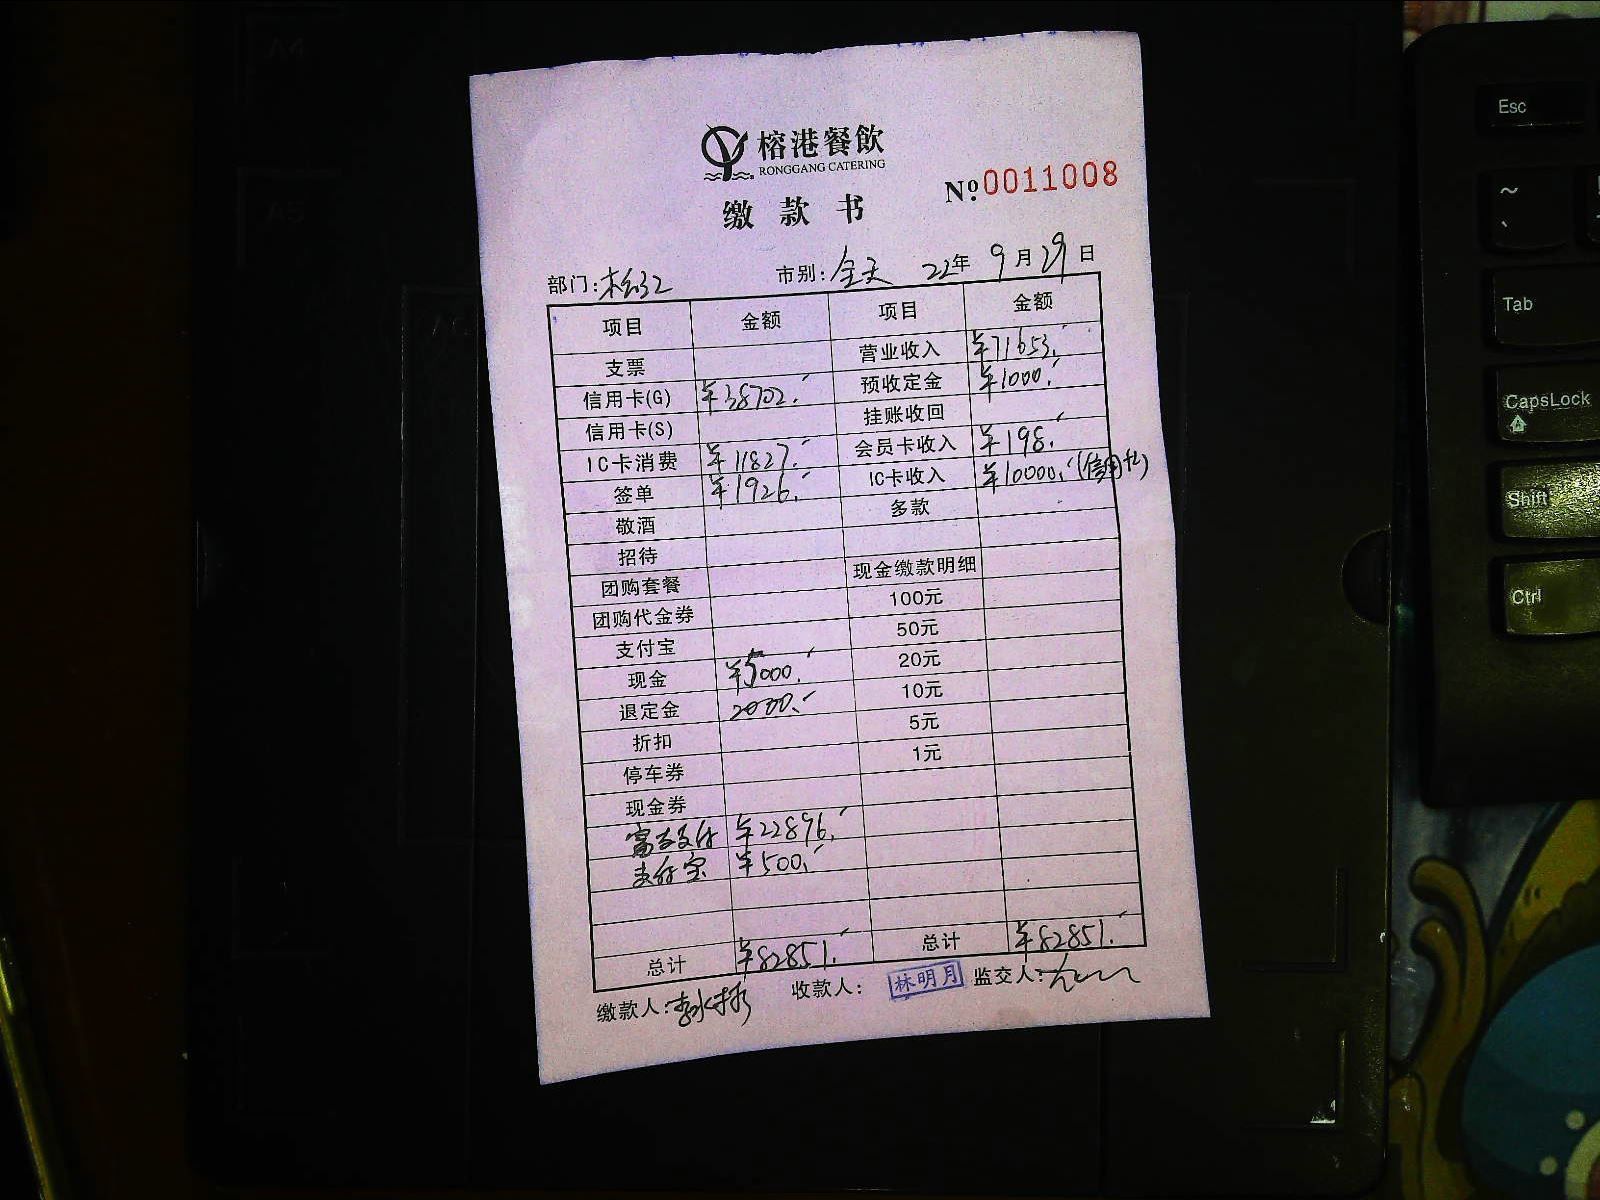 榕港餐飲
RONGGANG CATERING
№ 0011008
缴款书
部门:松江 市别:全天 22年9月29日
项目 金额 项目 金额
支票 营业收入 ¥71653.-
信用卡(G) ¥38702.- 预收定金 ¥1000.-
信用卡(S) 挂账收回
IC卡消费 ¥11827.- 会员卡收入 ¥198.-
签单 ¥1926.- IC卡收入 ¥10000.-(信用卡)
敬酒 多款
招待
团购套餐 现金缴款明细
团购代金券 100元
支付宝 50元
现金 ¥5000.- 20元
退定金 2000.- 10元
折扣 5元
停车券 1元
现金券
富友支付 ¥22896.-
支付宝 ¥500.-
总计 ¥82851.- 总计 ¥82851.-
缴款人: 收款人: 林明月 监交人:
Esc
~
、
Tab
CapsLock
Shift
Ctrl
A4
A5